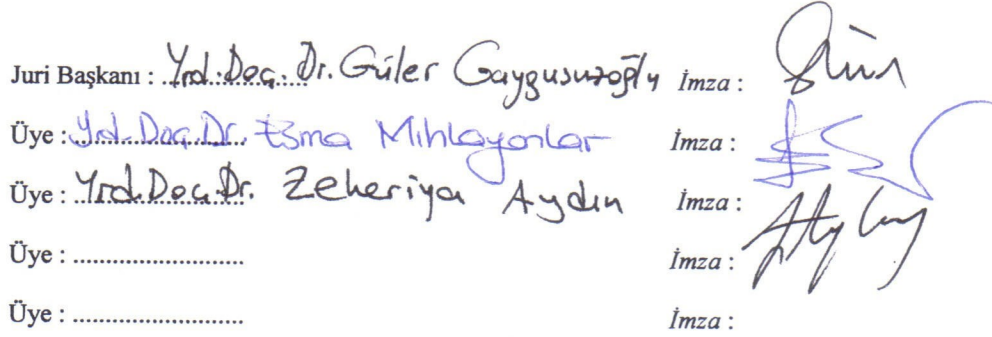 Juri Başkanı : Yrd. Doç. Dr. Güler Gaygusuzoğlu İmza :
Üye : Yrd. Doç. Dr. Esma Mihlayanlar İmza :
Üye : Yrd. Doç. Dr. Zekeriya Aydın İmza :
Üye : ......................... İmza :
Üye : ......................... İmza :